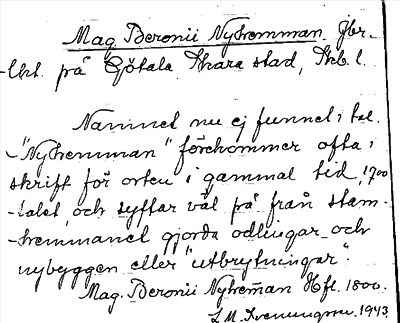 Mag. Beronii Nyhemman. Jbr-
-lht. på Götala Skara stad, Skb. l.
Namnet nu ej funnet i tal.
-"Nyhemman" förekommer ofta i
skrift för orten i gammal tid, 1700
-talet, och syftar väl på från stam-
-hemmanet gjorda odlingar och
nybyggen eller "utbrytningar".
Mag. Beronii Nyhem̄an Hfl. 1800.
L.M. Svenungsson 1943.